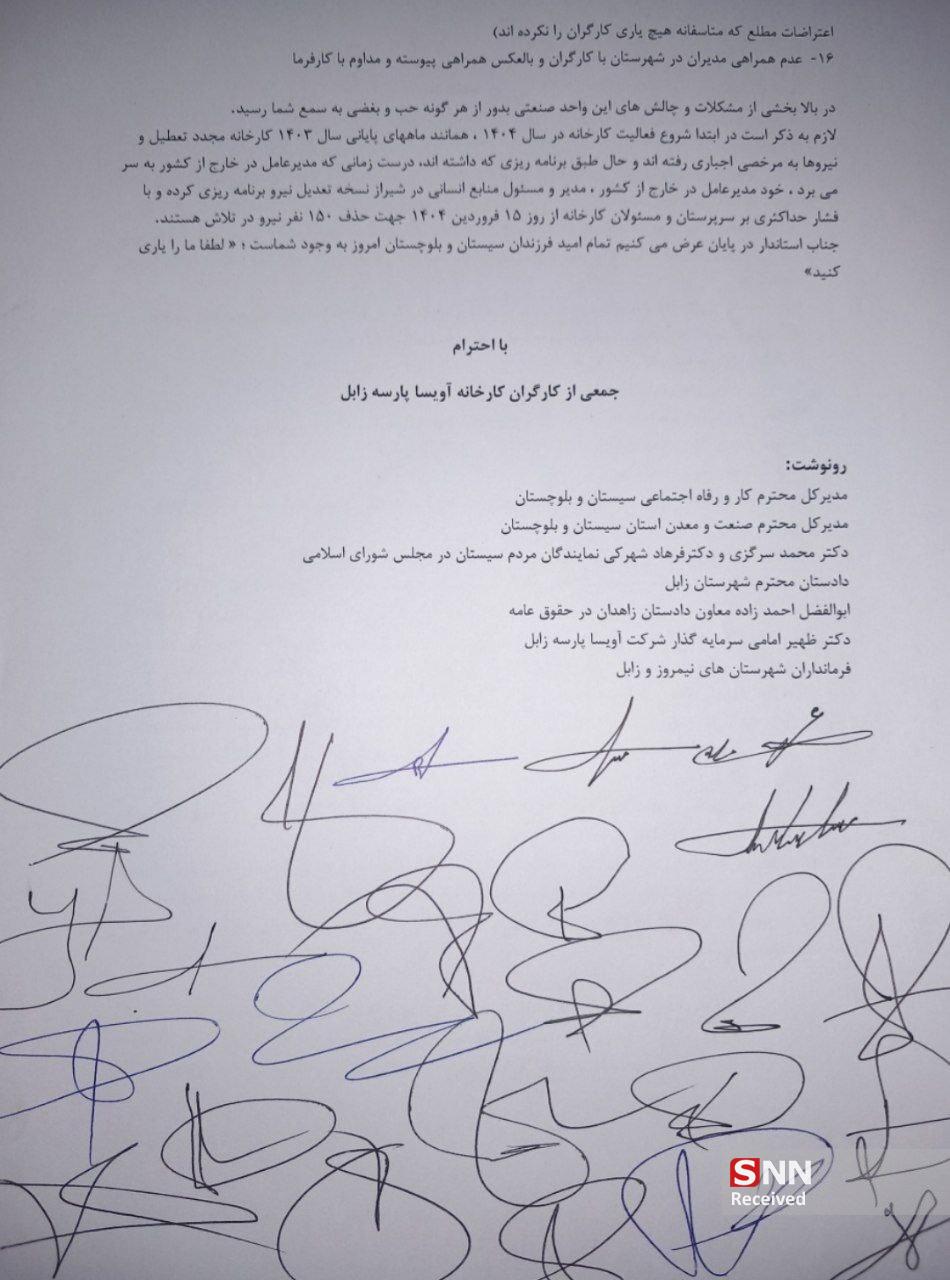 اعتراضات مطلع که متاسفانه هیچ یاری کارگران را نکرده اند)
۱۶- عدم همراهی مدیران در شهرستان با کارگران و بالعکس همراهی پیوسته و مداوم با کارفرما
در بالا بخشی از مشکلات و چالش های این واحد صنعتی بدور از هر گونه حب و بغضی به سمع شما رسید.
لازم به ذکر است در ابتدا شروع فعالیت کارخانه در سال ۱۴۰۴ ، همانند ماههای پایانی سال ۱۴۰۳ کارخانه مجدد تعطیل و
نیروها به مرخصی اجباری رفته اند و حال طبق برنامه ریزی که داشته اند، درست زمانی که مدیرعامل در خارج از کشور به سر
می برد ، خود مدیرعامل در خارج از کشور ، مدیر و مسئول منابع انسانی در شیراز نسخه تعدیل نیرو برنامه ریزی کرده و با
فشار حداکثری بر سرپرستان و مسئولان کارخانه از روز ۱۵ فروردین ۱۴۰۴ جهت حذف ۱۵۰ نفر نیرو در تلاش هستند.
جناب استاندار در پایان عرض می کنیم تمام امید فرزندان سیستان و بلوچستان امروز به وجود شماست ؛ « لطفا ما را یاری
کنید»
با احترام
جمعی از کارگران کارخانه آویسا پارسه زابل
رونوشت:
مدیرکل محترم کار و رفاه اجتماعی سیستان و بلوچستان
مدیرکل محترم صنعت و معدن استان سیستان و بلوچستان
دکتر محمد سرگزی و دکترفرهاد شهرکی نمایندگان مردم سیستان در مجلس شورای اسلامی
دادستان محترم شهرستان زابل
ابوالفضل احمد زاده معاون دادستان زاهدان در حقوق عامه
دکتر ظهیر امامی سرمایه گذار شرکت آویسا پارسه زابل
فرمانداران شهرستان های نیمروز و زابل
SNN
Received